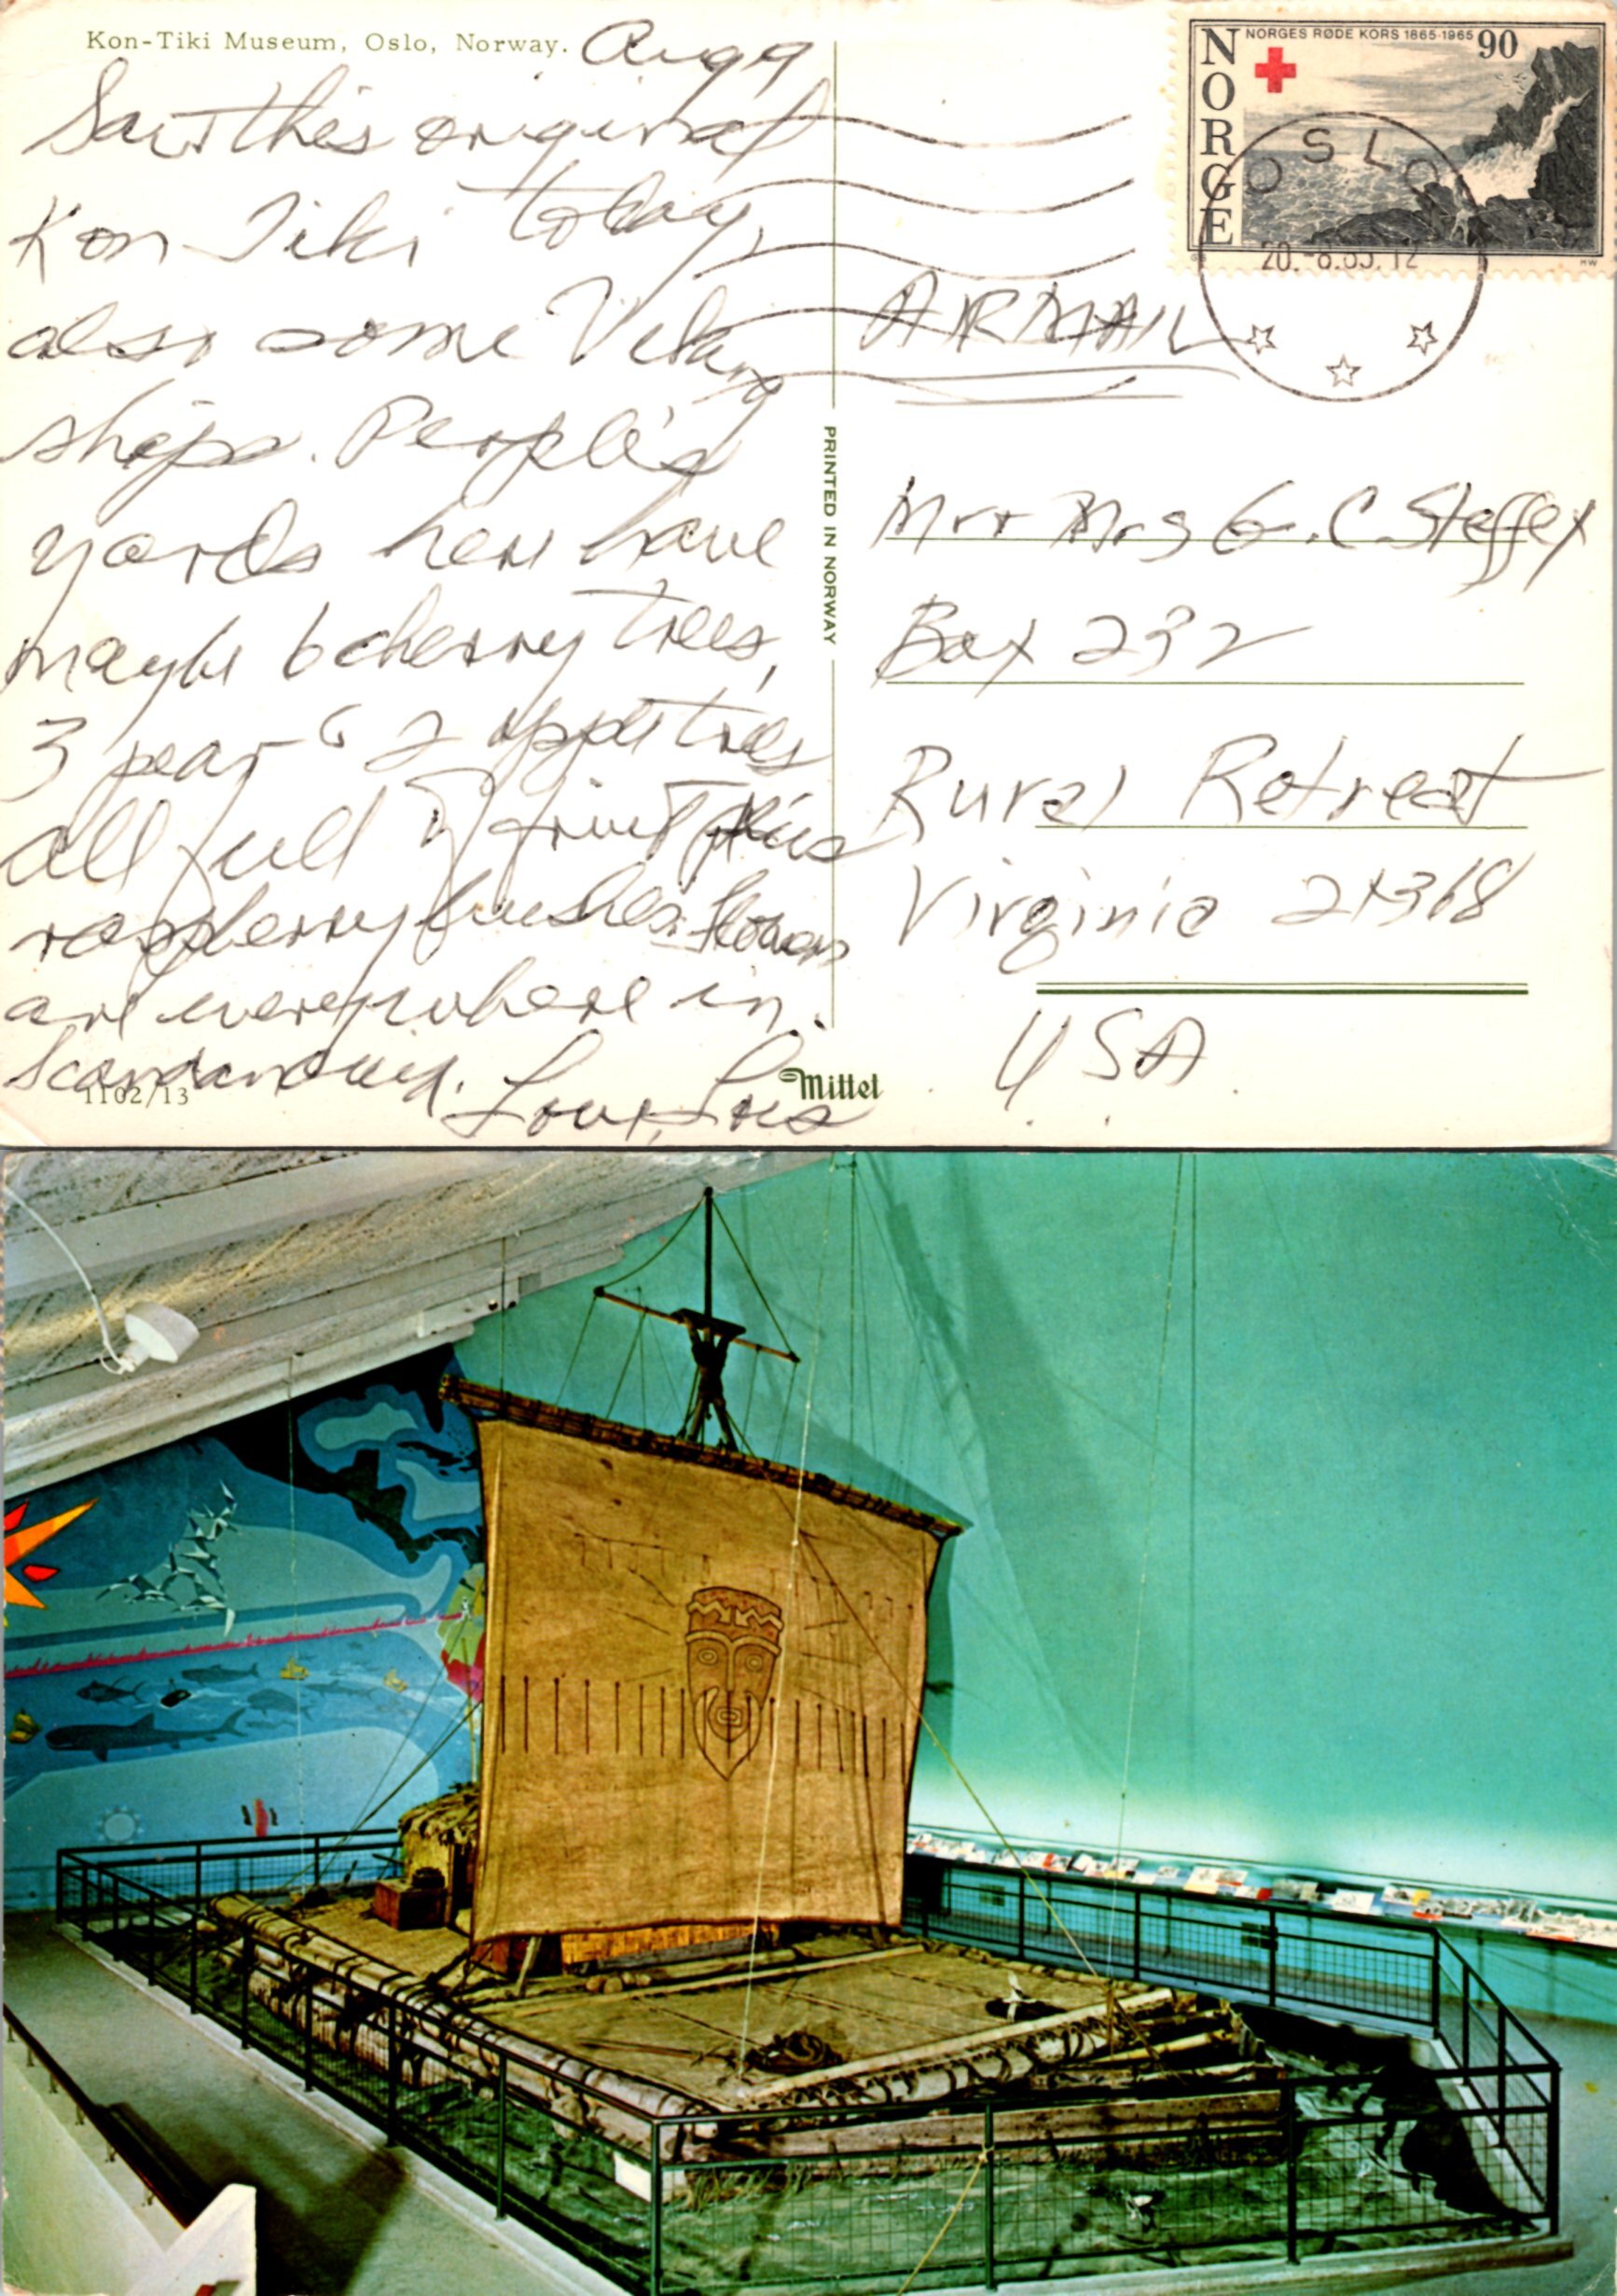 Kon-Tiki Museum, Oslo, Norway.
Aug 9
Saw this original
Kon Tiki today,
also some Viking
ships. People's
yards here have
maybe 6 cherry trees,
3 pear & 2 apple trees
all full of fruit plus
raspberry bushes. Flowers
are everywhere in
Scandanavia.
Love, Lois
1102/13
Mittet
PRINTED IN NORWAY
NORGE
NORGES RØDE KORS 1865-1965
90
OSLO
20.-8.65.12
AIRMAIL
Mr + Mrs G. C. Steffey
Box 232
Rural Retreat
Virginia 24368
USA